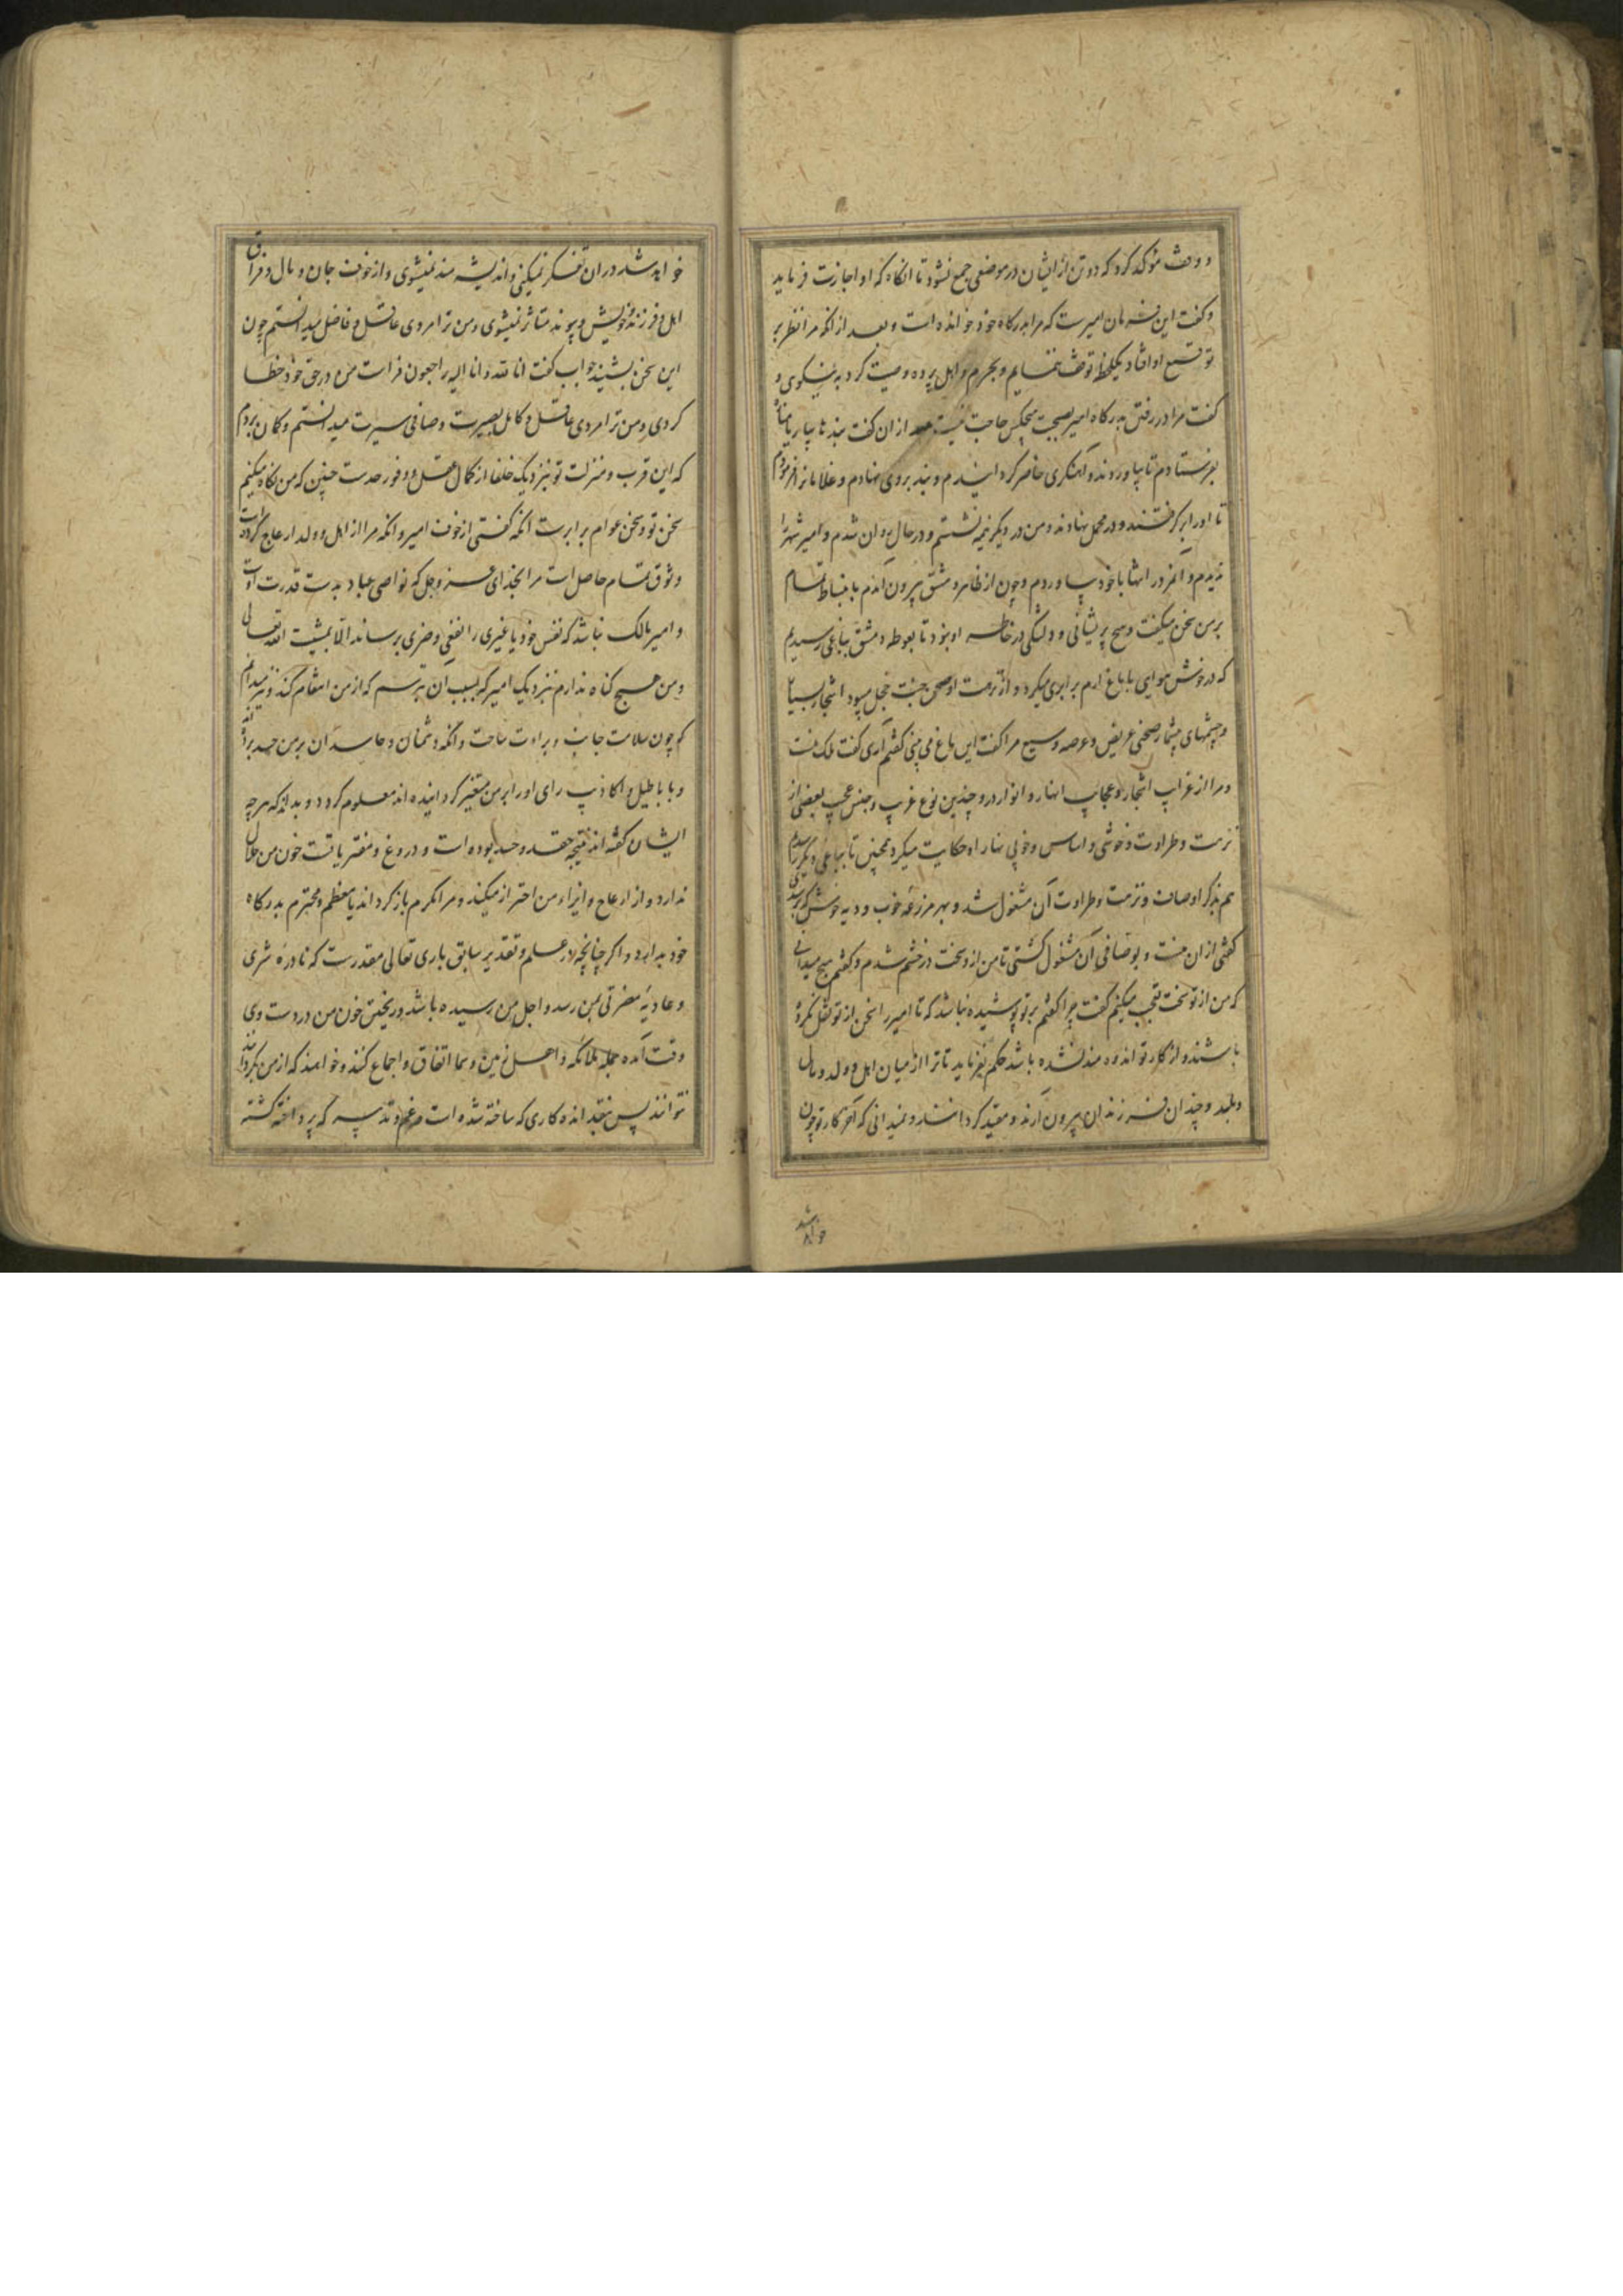 و وقف مؤکد کرد که دو تن از ایشان در موضعی جمع نشود تا انکاه که او اجازت فرماید
و کفت این فرمان امیرست که مرا بدرکاه خود خوانده است و بعد از انکه مرا نظر بر
توقیع او افتاد یکلحظه توقف ننمایم و بحرم و اهل پرده وصیت کرد به نیکوی و
کفت مرا در رفتن بدرکاه امیر بصحبت هیچکس حاجت نیست بعد از ان کفت بند تا بیار
بفرستادم تا بیاوردند و آهنکری حاضر کردانیدم و بند بر وی نهادم و غلامانرا فرمودم
تا اورا برکرفتند و در محمل نهادند و من در دیکر نیمه نشستم و در حال روان شدم و امیر شهر را
ندیدم و آنمرد را تنها با خود بیاوردم و چون از ظاهر دمشق بیرون آمدم بانبساط تمام
با من سخن میکفت و هیچ پریشانی و دلتنکی در خاطر او نبود تا بغوطه دمشق بباغی رسیدیم
که در خوش هوایی با باغ ارم برابری میکرد و از نزهت او صحن جنت خجل میبود اشجار بسیار
و چشمهای بیشمار صحنی عریض و عرصه وسیع مرا کفت این باغ می بینی کفتم آری کفت ملک منست
و مرا از غرایب اشجار و عجایب انهار و انوار درو چندین نوع غریب و جنس عجیب بعضی از
نزهت و طراوت و خوشی و اساس و خوبی بنار او حکایت میکرد همچنین تا بباغی دیکر رسیدیم
هم بذکر اوصاف و نزهت و طراوت آن مشغول شد و بهر مزرعه خوب و دیه خوش که رسیدی
کفتی از ان منست و بوصافی آن مشغول کشتی تا من از وسخت در خشم شدم و کفتم هیچ میدانی
که من از تو سخت تعجب میکنم کفت چرا کفتم بر تو پوشیده نباشد که تا امیر را سخن از تو نقل نکرده
باشند و از کار تو اندوه مند نشده باشد حکم نفرماید تا ترا از میان اهل و ولد و مال
و بلد و چندان فرزندان بیرون آرند و مقید کردانند و نمیدانی که آخر کار تو چون
خواهد شد
خواهد شد در ان تفکر نمیکنی و اندیشه مند نمیشوی و از خوف جان و مال و فراق
اهل و فرزند و خویش و پیوند متاثر نمیشوی و من ترا مردی عاقل و فاضل میدانستم چون
این سخن بشنید جواب کفت انا لله و انا الیه راجعون فراست من در حق خود خطا
کردی و من ترا مردی عاقل و کامل بصیرت و صافی سیرت میدانستم و کمان بردم
که این قرب و منزلت تو بنزدیک خلفا از کمال عقل و وفور حدست چنین که من نکاه میکنم
سخن تو و سخن عوام برابرست انکه کفتی از خوف امیر و انکه مرا از اهل و ولد ازعاج کردست
وثوق تمام حاصل است مرا بخدای عز و جل که نواصی عباد بدست قدرت اوست
و امیر مالک نباشد که نفس خود یا غیری را نفعی و ضری برساند الا بمشیت الله تعالی
و من هیچ کناه ندارم بنزدیک امیر که بسبب ان بترسم که از من انتقام کند و نیز میدانم
که چون سلامت جانب و براءت ساحت و انکه دشمنان و حاسدان بر من حسد برده اند
و باباطیل و اکاذیب رای اورا بر من متغیر کردانیده اند معلوم کردد و بداند که هر چه
ایشان کفته اند نتیجه حقد و حسد بوده است و دروغ و مفتریاتست خون من حلال
ندارد و از ازعاج و ایزاء من احتراز میکند و مرا مکرم بازکرداند یا معظم و محترم بدرکاه
خود بدارد و اکر چنانچه در علم و تقدیر سابق باری تعالی مقدرست که نادره شری
و عادیه مضرتی بمن رسد و اجل من رسیده باشد و ریختن خون من در دست وی
وقت آمده جمله ملائکه و اهل زمین و سما اتفاق و اجماع کنند و خواهند که از من بکردانند
نتوانند پس بتقدیر انده کاری که ساخته شده است و غم و تدبیر که پرداخته کشته